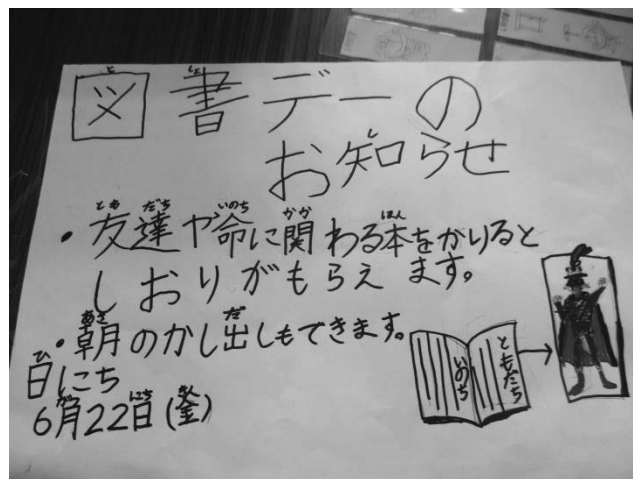 図書デーの
お知らせ
・友達や命に関わる本をかりると
しおりがもらえます。
・朝のかし出しもできます。
日にち
6月22日(金)
いのち
ともだち